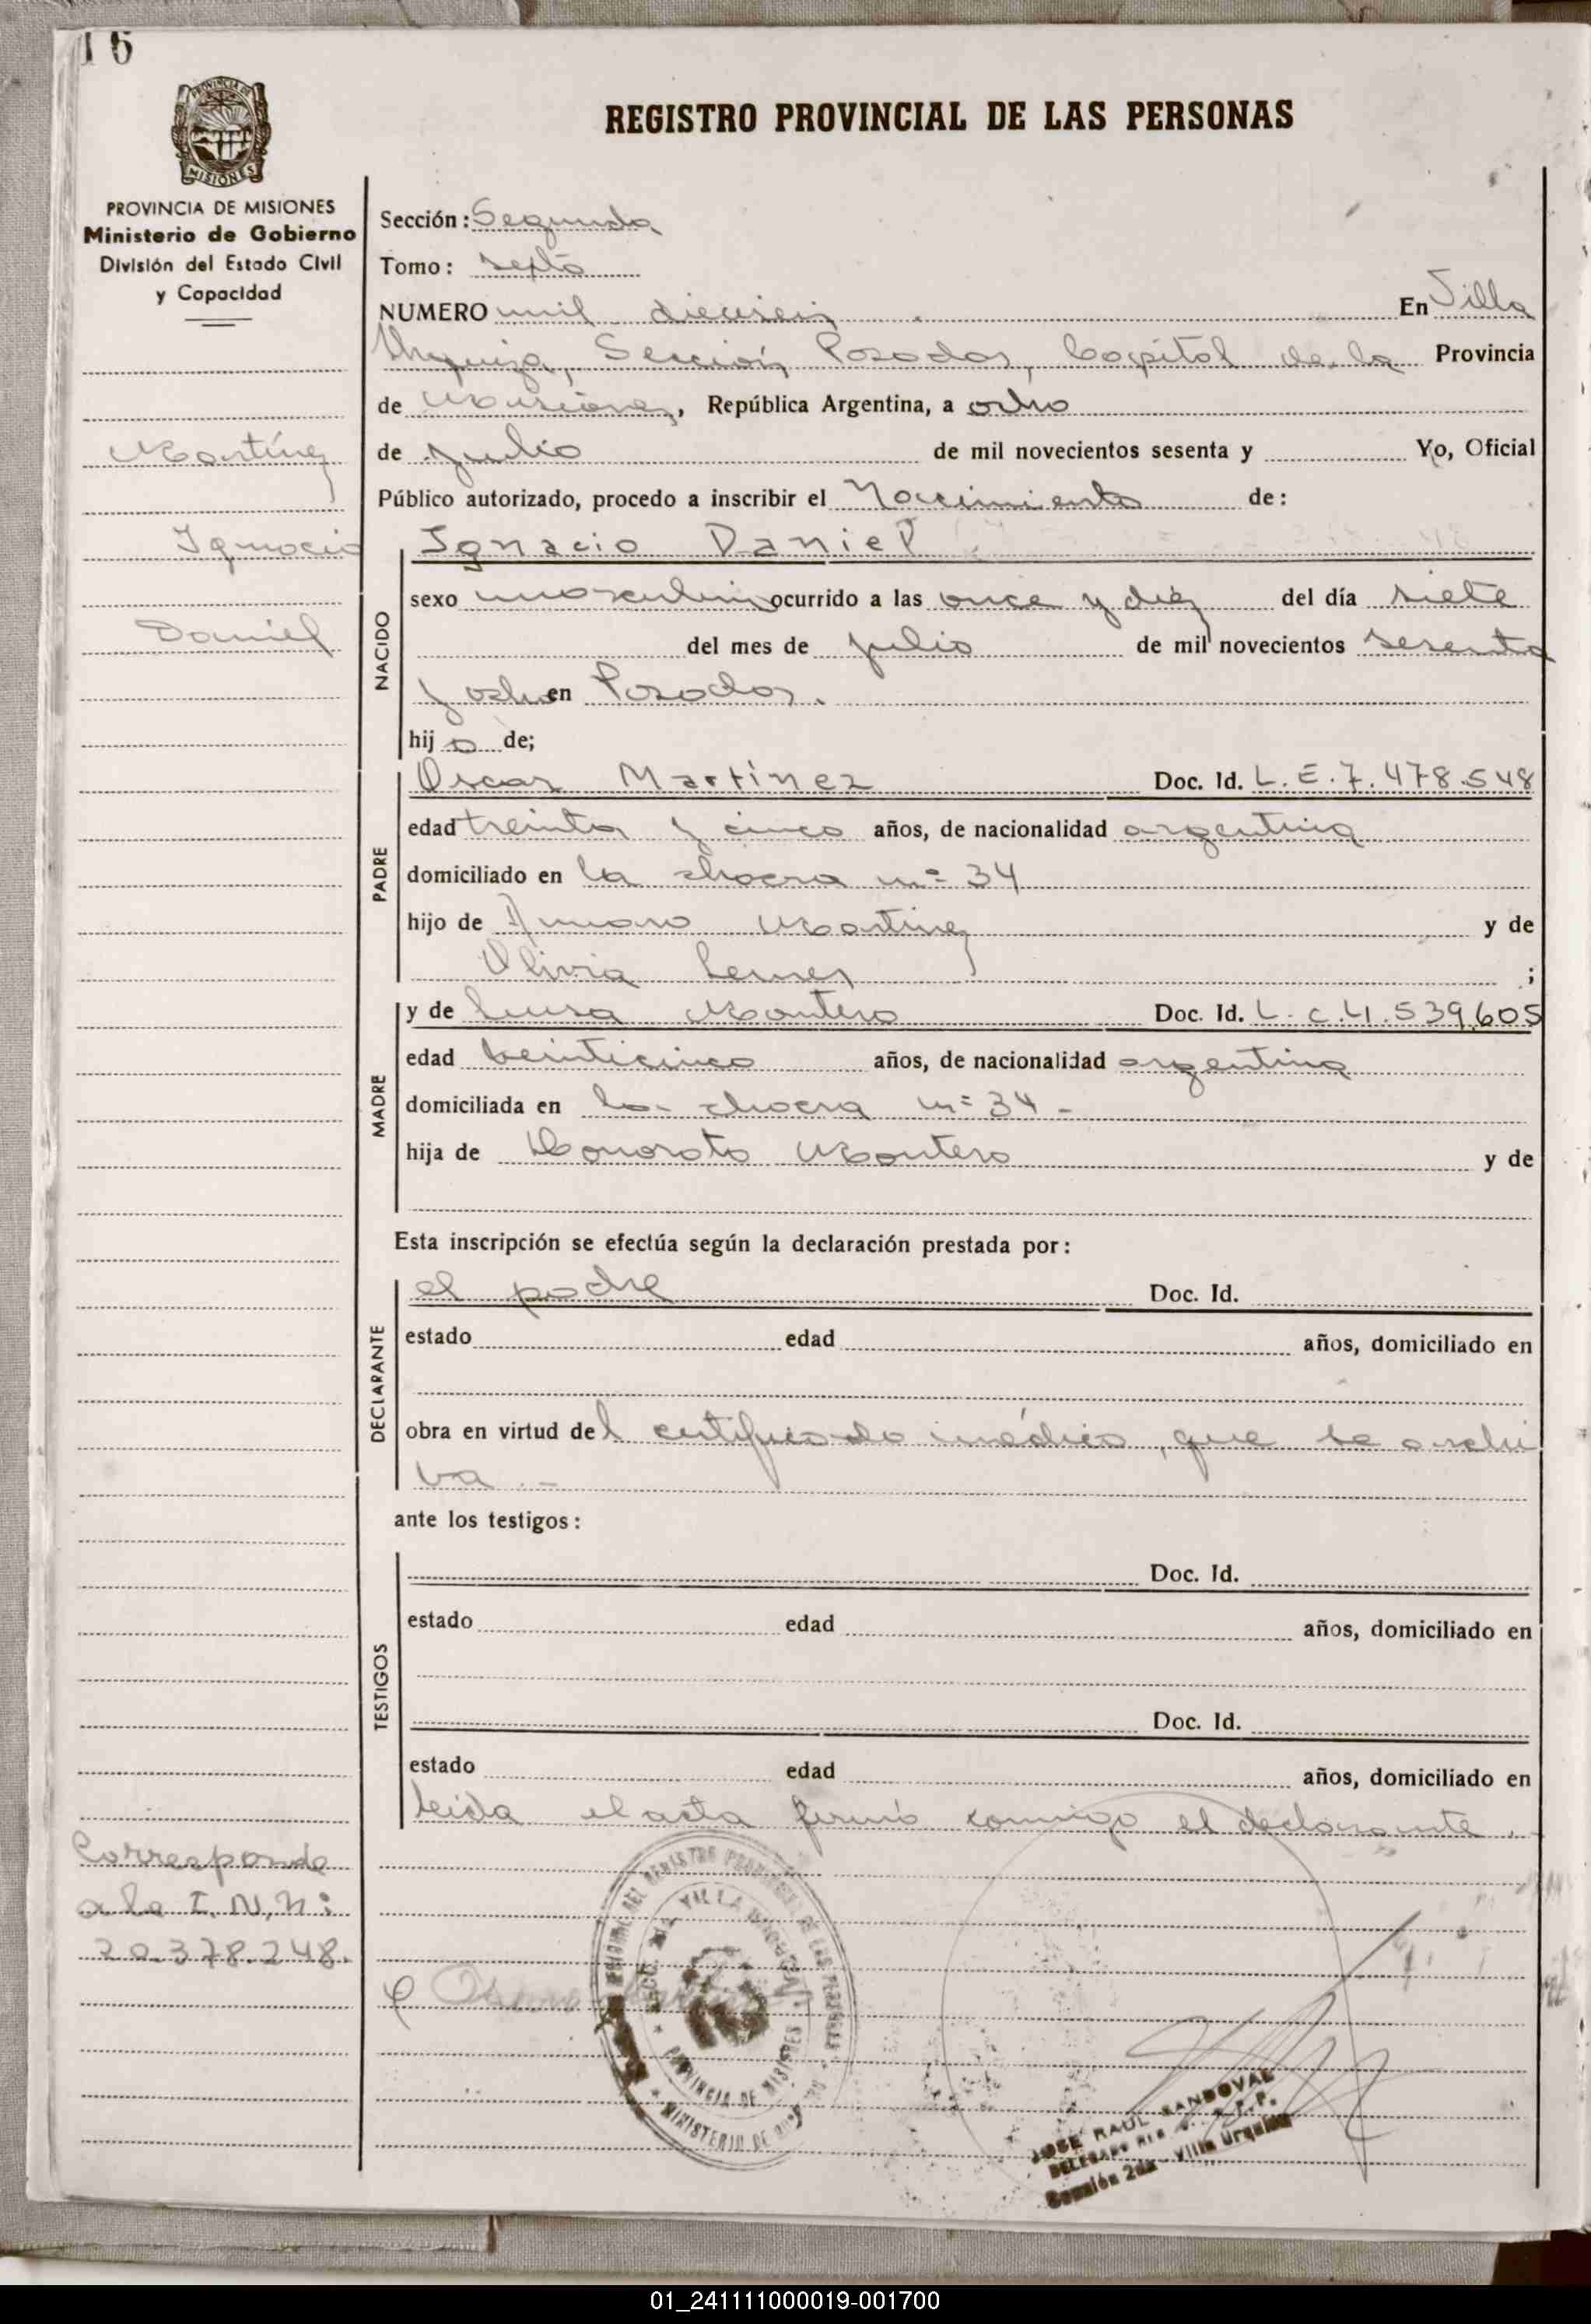 16
PROVINCIA DE MISIONES
REGISTRO PROVINCIAL DE LAS PERSONAS
PROVINCIA DE MISIONES
Ministerio de Gobierno
División del Estado Civil
y Capacidad
Martínez
Ignacio
Daniel
Corresponde
a la I. N, N:
20.378.248.
Sección: Segunda
Tomo: septo
NUMERO mil dieciseis En Villa
Urquiza, Sección Posadas, Capital de la Provincia
de Misiones, República Argentina, a ocho
de julio de mil novecientos sesenta y Yo, Oficial
Público autorizado, procedo a inscribir el Nacimiento de:
NACIDO
Ignacio Daniel
sexo masculino ocurrido a las once y diez del día siete
del mes de julio de mil novecientos sesenta
y ocho en Posadas.
hijo de;
PADRE
Oscar Martínez Doc. Id. L.E.7.478.548
edad treinta y cinco años, de nacionalidad argentina
domiciliado en la chacra nº 34
hijo de Amaro Martinez y de
Olivia ;
MADRE
y de Luisa Montero Doc. Id. L.C.4.539.605
edad veinticinco años, de nacionalidad argentina
domiciliada en la chacra nº 34 -
hija de Honorato Montero y de
Esta inscripción se efectúa según la declaración prestada por:
DECLARANTE
el padre Doc. Id.
estado edad años, domiciliado en
obra en virtud del certificado médico, que se archi
va.-
ante los testigos:
TESTIGOS
Doc. Id.
estado edad años, domiciliado en
Doc. Id.
estado edad años, domiciliado en
leída el acta firmó conmigo el declarante.
DEL REGISTRO PROVINCIAL DE LAS PERSONAS
SECC. 2da VILLA URQUIZA
PROVINCIA DE MISIONES
MINISTERIO DE
JOSE RAUL SANDOVAL
DELEGADO
Sección 2da - Villa Urquiza
01_241111000019-001700